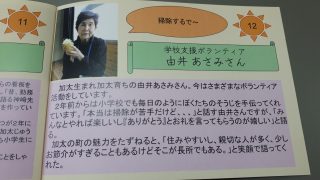 11
掃除するで～
12
学校支援ボランティア
由井 あさみさん
加太生まれ加太育ちの由井あさみさん。今はさまざまなボランティア
活動をしています。
2年前からは小学校でも毎日のようにぼくたちのそうじを手伝ってくれ
ています。「本当は掃除が苦手だけど、、、」と話す由井さんですが、「み
んなとやれば楽しいし『ありがとう』とお礼を言ってもらうのが嬉しい」と語
る。
加太の町の魅力をたずねると、「住みやすいし、親切な人が多く、少し
お節介がすぎることもあるけどそこが長所でもある。」と笑顔で話してく
れた。